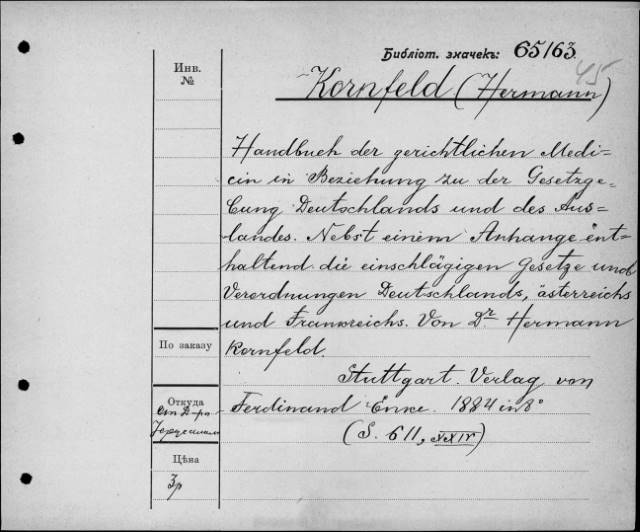 Библіот. значекъ: 65/63
45
Инв.
№
Kornfeld (Hermann)
Handbuch der gerichtlichen Medi=
cin in Beziehung zu der Gesetzge=
bung Deutschlands und des Aus=
landes. Nebst einem Anhange ent=
haltend die einschlägigen Gesetze und
Verordnungen Deutschlands, österreichs
und Frankreichs. Von Dr Hermann
По заказу
Kornfeld.
Stuttgart. Verlag von
Откуда
Ferdinand Enke. 1884 in 8°
отъ Д-ра
(S. 611, XXIV)
Цѣна
3р